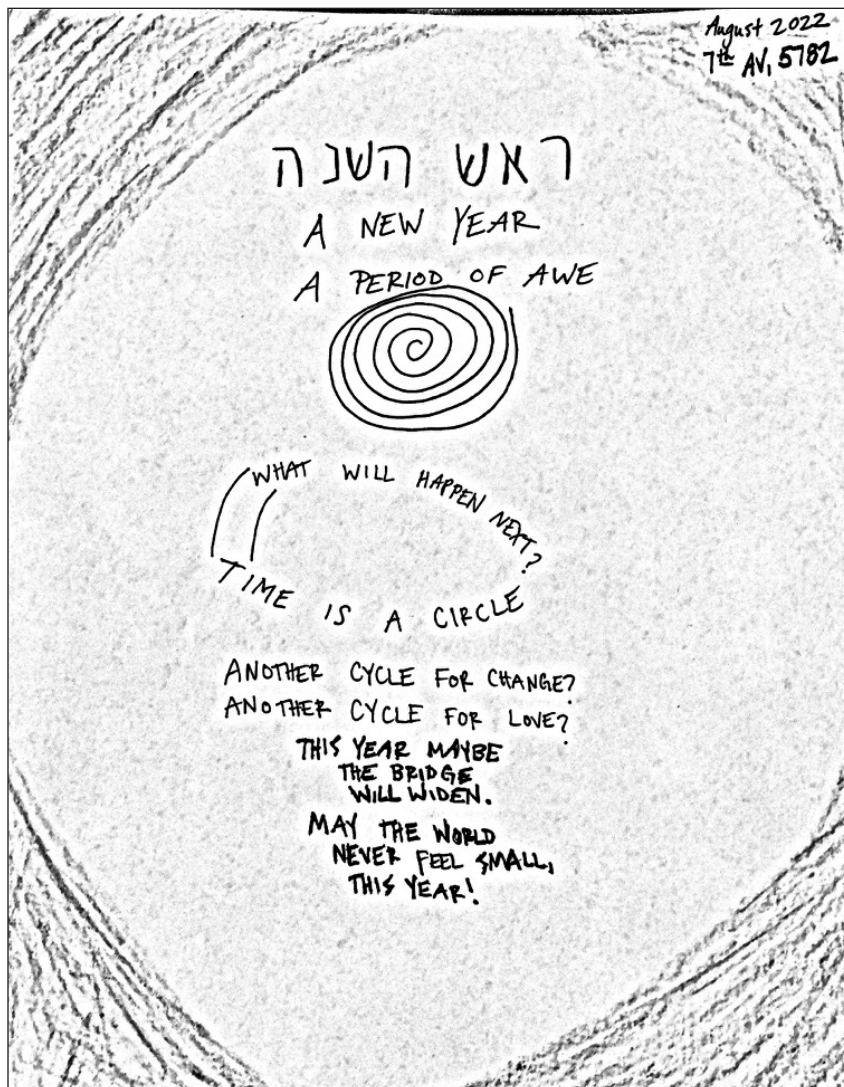 August 2022
7th AV, 5782
ראש השנה
A NEW YEAR
A PERIOD OF AWE
WHAT WILL HAPPEN NEXT?
TIME IS A CIRCLE
ANOTHER CYCLE FOR CHANGE?
ANOTHER CYCLE FOR LOVE?
THIS YEAR MAYBE
THE BRIDGE
WILL WIDEN.
MAY THE WORLD
NEVER FEEL SMALL,
THIS YEAR!